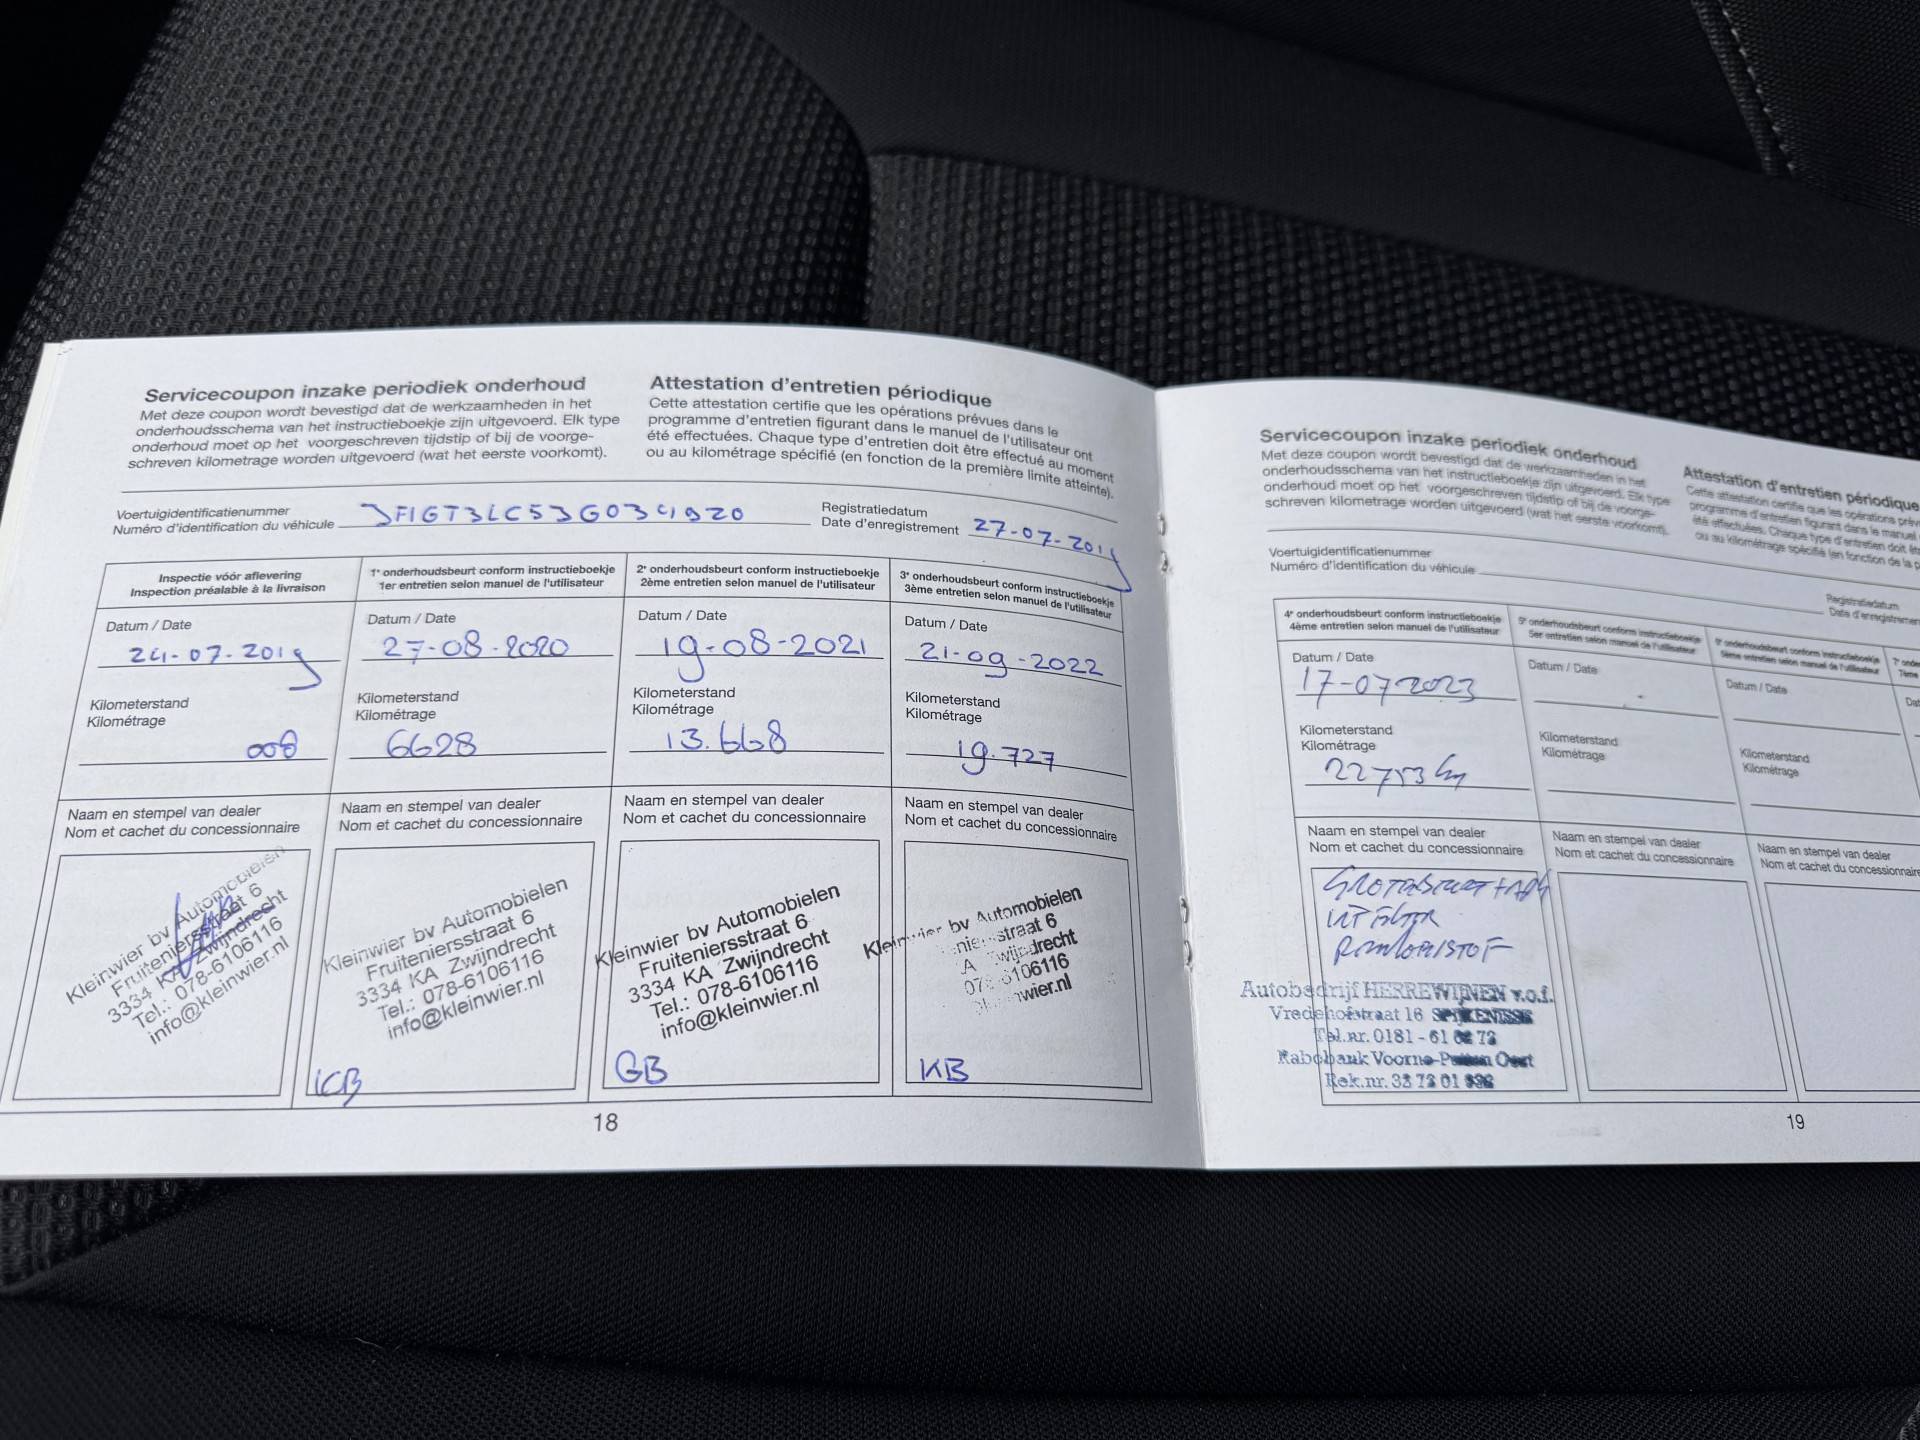 Servicecoupon inzake periodiek onderhoud
Met deze coupon wordt bevestigd dat de werkzaamheden in het
onderhoudsschema van het instructieboekje zijn uitgevoerd. Elk type
onderhoud moet op het voorgeschreven tijdstip of bij de voorge-
schreven kilometrage worden uitgevoerd (wat het eerste voorkomt).
Attestation d'entretien périodique
Cette attestation certifie que les opérations prévues dans le
programme d'entretien figurant dans le manuel de l'utilisateur ont
été effectuées. Chaque type d'entretien doit être effectué au moment
ou au kilométrage spécifié (en fonction de la première limite atteinte).
Voertuigidentificatienummer
Numéro d'identification du véhicule JF1GT3LC53G034920
Registratiedatum
Date d'enregistrement 27-07-2019
Inspectie vóór aflevering
Inspection préalable à la livraison
Datum / Date
24-07-2019
Kilometerstand
Kilométrage
008
Naam en stempel van dealer
Nom et cachet du concessionnaire
Kleinwier bv Automobielen
Fruiteniersstraat 6
3334 KA Zwijndrecht
Tel.: 078-6106116
info@kleinwier.nl
1e onderhoudsbeurt conform instructieboekje
1er entretien selon manuel de l'utilisateur
Datum / Date
27-08-2020
Kilometerstand
Kilométrage
6628
Naam en stempel van dealer
Nom et cachet du concessionnaire
Kleinwier bv Automobielen
Fruiteniersstraat 6
3334 KA Zwijndrecht
Tel.: 078-6106116
info@kleinwier.nl
KB
2e onderhoudsbeurt conform instructieboekje
2ème entretien selon manuel de l'utilisateur
Datum / Date
19-08-2021
Kilometerstand
Kilométrage
13.668
Naam en stempel van dealer
Nom et cachet du concessionnaire
Kleinwier bv Automobielen
Fruiteniersstraat 6
3334 KA Zwijndrecht
Tel.: 078-6106116
info@kleinwier.nl
GB
3e onderhoudsbeurt conform instructieboekje
3ème entretien selon manuel de l'utilisateur
Datum / Date
21-09-2022
Kilometerstand
Kilométrage
19.727
Naam en stempel van dealer
Nom et cachet du concessionnaire
Kleinwier bv Automobielen
KB
18
Servicecoupon inzake periodiek onderhoud
Met deze coupon wordt bevestigd dat de werkzaamheden in het
onderhoudsschema van het instructieboekje zijn uitgevoerd. Elk type
onderhoud moet op het voorgeschreven tijdstip of bij de voorge-
schreven kilometrage worden uitgevoerd (wat het eerste voorkomt).
Attestation d'entretien périodique
Cette attestation certifie que les opérations
programme d'entretien figurant dans le manuel
été effectuées. Chaque type d'entretien doit
ou au kilométrage spécifié (en fonction de la
Voertuigidentificatienummer
Numéro d'identification du véhicule
Registratiedatum
Date d'enregistrement
4e onderhoudsbeurt conform instructieboekje
4ème entretien selon manuel de l'utilisateur
Datum / Date
17-07-2023
Kilometerstand
Kilométrage
22753 km
Naam en stempel van dealer
Nom et cachet du concessionnaire
Autobedrijf HERREWIJNEN v.o.f.
Vredehofstraat 16 SPIJKENISSE
Tel.nr. 0181 - 61
Rabobank Voorne-Putten Oost
Rek.nr. 33 73 01
5e onderhoudsbeurt conform instructieboekje
5er entretien selon manuel de l'utilisateur
Datum / Date
Kilometerstand
Kilométrage
Naam en stempel van dealer
Nom et cachet du concessionnaire
onderhoudsbeurt conform instructieboekje
entretien selon manuel de l'utilisateur
Datum / Date
Kilometerstand
Kilométrage
Naam en stempel van dealer
Nom et cachet du concessionnaire
19